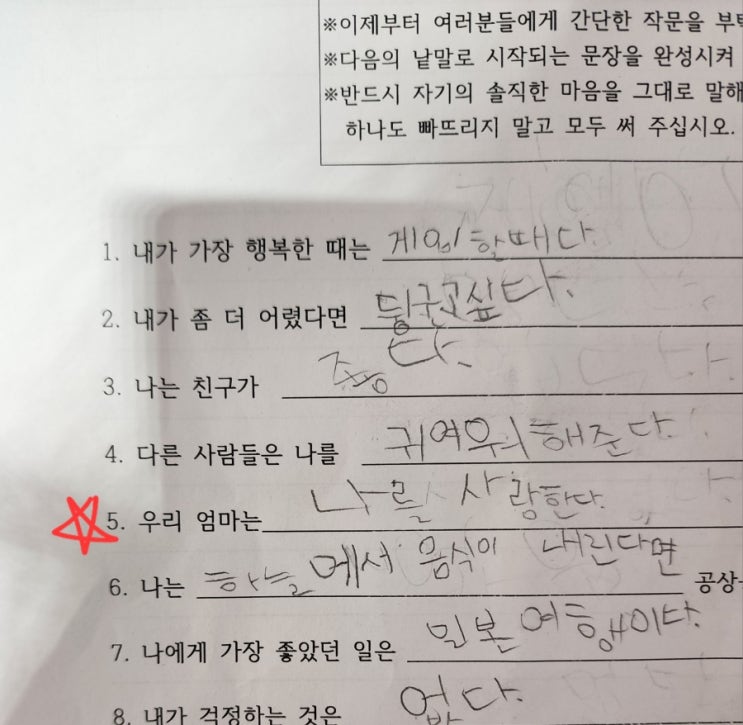 ※이제부터 여러분들에게 간단한 작문을 부탁
※다음의 낱말로 시작되는 문장을 완성시켜
※반드시 자기의 솔직한 마음을 그대로 말해
하나도 빠뜨리지 말고 모두 써 주십시오.
1. 내가 가장 행복한 때는 게임할때다.
2. 내가 좀 더 어렸다면 뒹굴고싶다.
3. 나는 친구가 다.
4. 다른 사람들은 나를 귀여우ㅓ해준다.
5. 우리 엄마는 나를 사랑한다.
6. 나는 하늘에서 음식이 내린다면 공상
7. 나에게 가장 좋았던 일은 일본여행이다.
8. 내가 걱정하는 것은 없다.